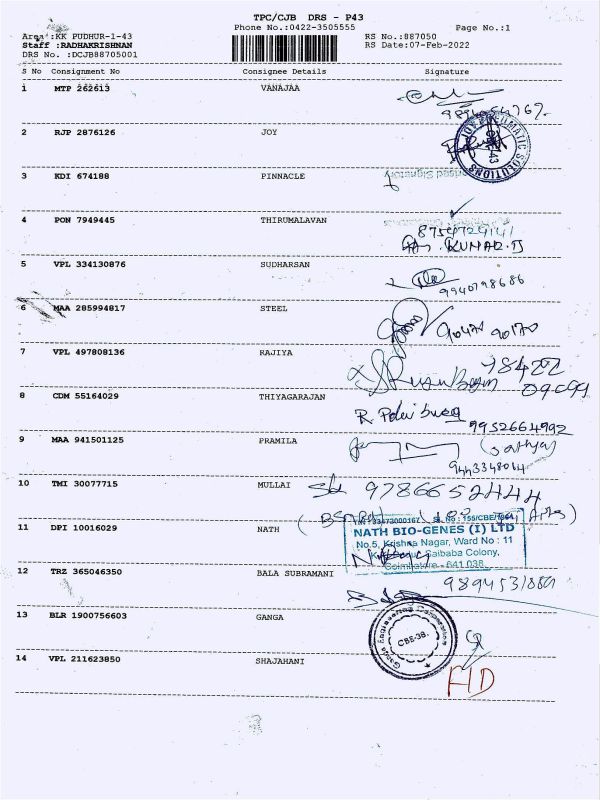 TPC/CJB DRS - P43
Phone No.:0422-3505555 Page No.:1
Area :KK PUDHUR-1-43 RS No.:887050
Staff :RADHAKRISHNAN RS Date:07-Feb-2022
DRS No. :DCJB88705001
S No Consignment No Consignee Details Signature
1 MTP 262613 VANAJAA
2 RJP 2876126 JOY
JOY PNEUMATIC SOLUTIONS
3 KDI 674188 PINNACLE
Authorised Signatory
4 PON 7949445 THIRUMALAVAN
8754729141
KUMAR.D
5 VPL 334130876 SUDHARSAN
9940798686
6 MAA 285994817 STEEL
90470 90170
7 VPL 497808136 RAJIYA
8 CDM 55164029 THIYAGARAJAN
9952664992
9 MAA 941501125 PRAMILA
(Sathya)
9443348014
10 TMI 30077715 MULLAI
9786652444
11 DPI 10016029 NATH
NATH BIO-GENES (I) LTD
No.5, Krishna Nagar, Ward No : 11
Saibaba Colony,
Coimbatore - 641 038.
12 TRZ 365046350 BALA SUBRAMANI
13 BLR 1900756603 GANGA
Ganga Engineering Corporation
CBE-38.
14 VPL 211623850 SHAJAHANI
FID